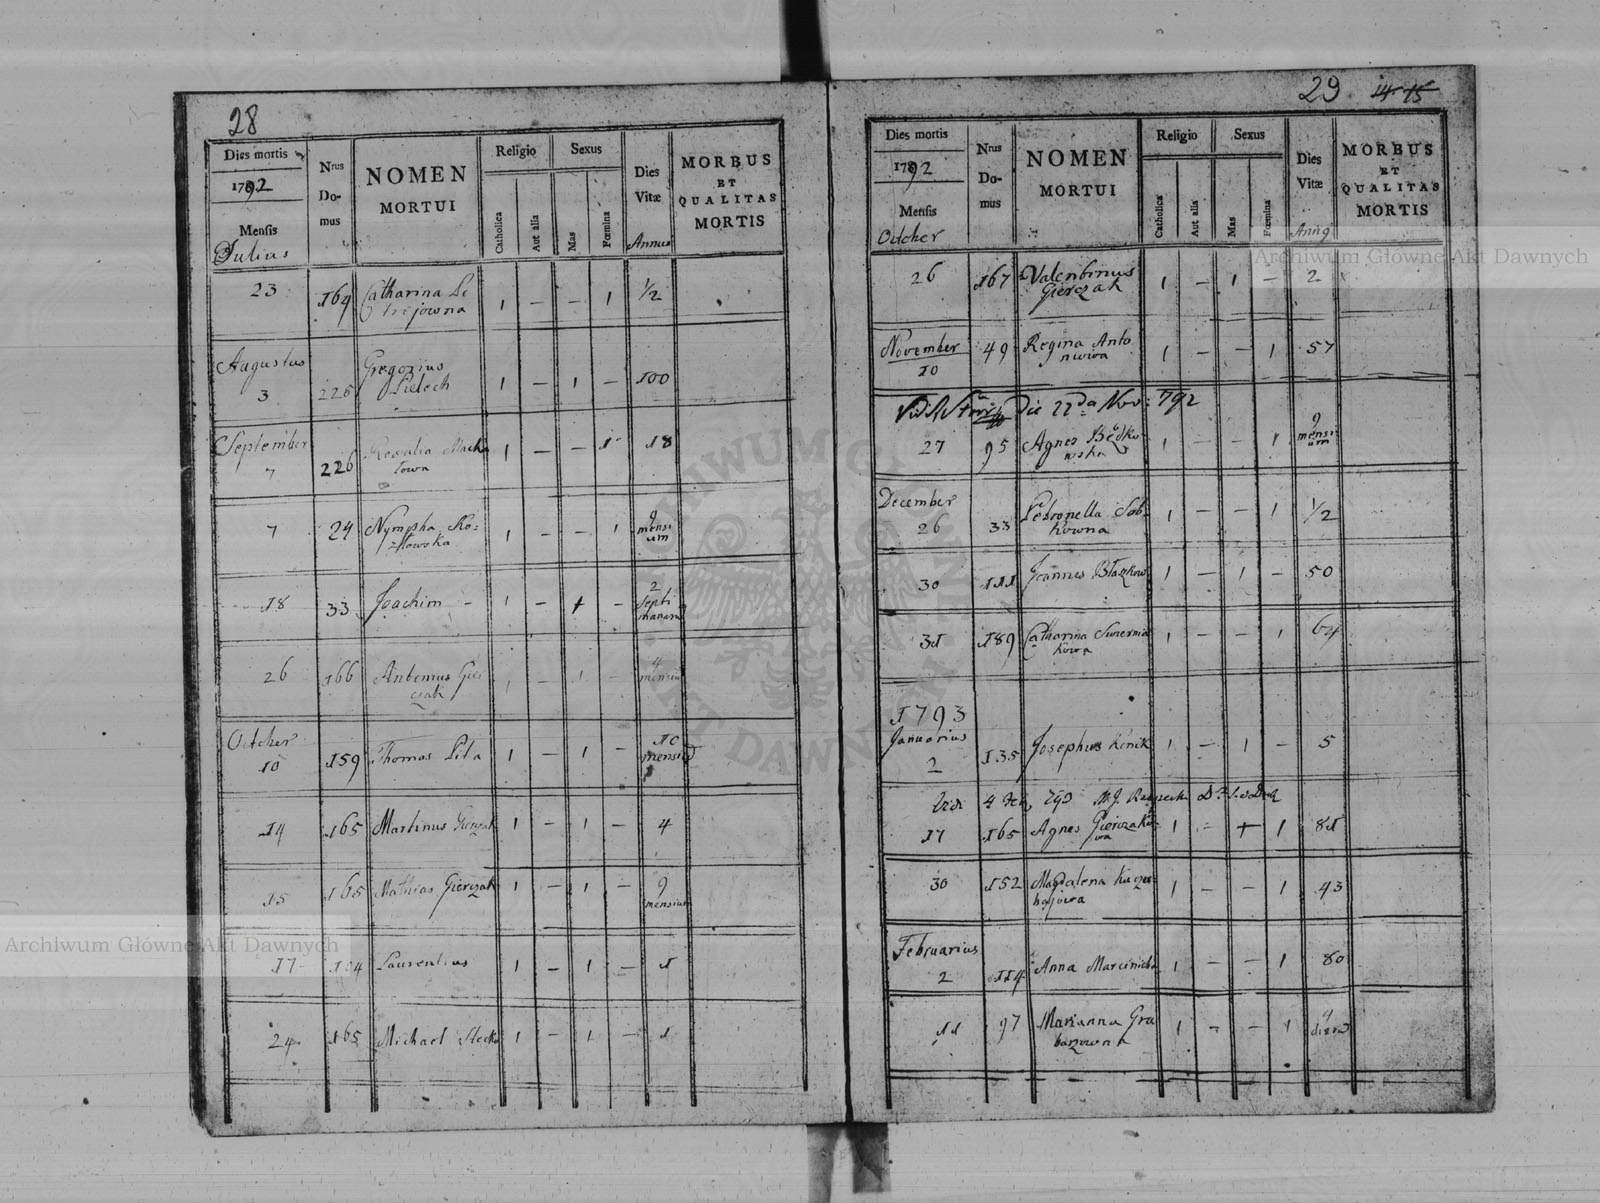 28
Dies mortis
1792
Mensis
Julius
Nrus Domus
NOMEN
MORTUI
Religio
Catholica
Aut alia
Sexus
Mas
Fœmina
Dies
Vitæ
Annus
MORBUS
ET
QUALITAS
MORTIS
23 164 Catharina Pe
trejowna 1 – – 1 1/2
Augustus
3 226 Gregorius
Pielech 1 – 1 – 100
September
7 226 Rosalia Mack
towa 1 – – 1 18
7 24 Nympha Ko=
złowska 1 – – 1 9
mensi
um
18 33 Joachim – 1 – + – 2
septi
manarum
26 166 Antonius Gier
czak 1 – 1 – 4
mensiu
October
10 159 Thomas Pita 1 – 1 – 10
mensiu
14 165 Martinus Gierczak 1 – 1 – 4
15 165 Mathias Gierczak 1 – 1 – 9
mensium
17 104 Laurentius 1 – 1 – 1
24 165 Michael 1 – 1 – 1
29 14 15
Dies mortis
1792
Mensis
October
Nrus
Domus
NOMEN
MORTUI
Religio
Catholica
Aut alia
Sexus
Mas
Fœmina
Dies
Vitæ
MORBUS
ET
QUALITAS
MORTIS
26 167 Valentinus
Gierczak 1 – 1 – 2
November
10 49 Regina Anto
nwiwa 1 – – 1 57
Die 22da Nov: 792
27 95 Agnes Będko
wska 1 – – 1 9
mensi
um
December
26 33 Petronella Sob
kowna 1 – – 1 1/2
30 111 Joannes Błażkow 1 – 1 – 50
31 189 Catharina Swiernia
kowa 1 – – 1 64
1793
Januarius
2 135 Josephus Konik 1 – 1 – 5
17 165 Agnes Gierczako
wa 1 – + 1 81
30 152 Magdalena Kuczu
bajowa 1 – – 1 43
Februarius
2 114 Anna Marciniak 1 – – 1 80
11 97 Marianna Gra
barzowna 1 – – 1 4
dierū
Archiwum Główne Akt Dawnych
Archiwum Główne Akt Dawnych
ARCHIWUM GŁÓWNE AKT DAWNYCH